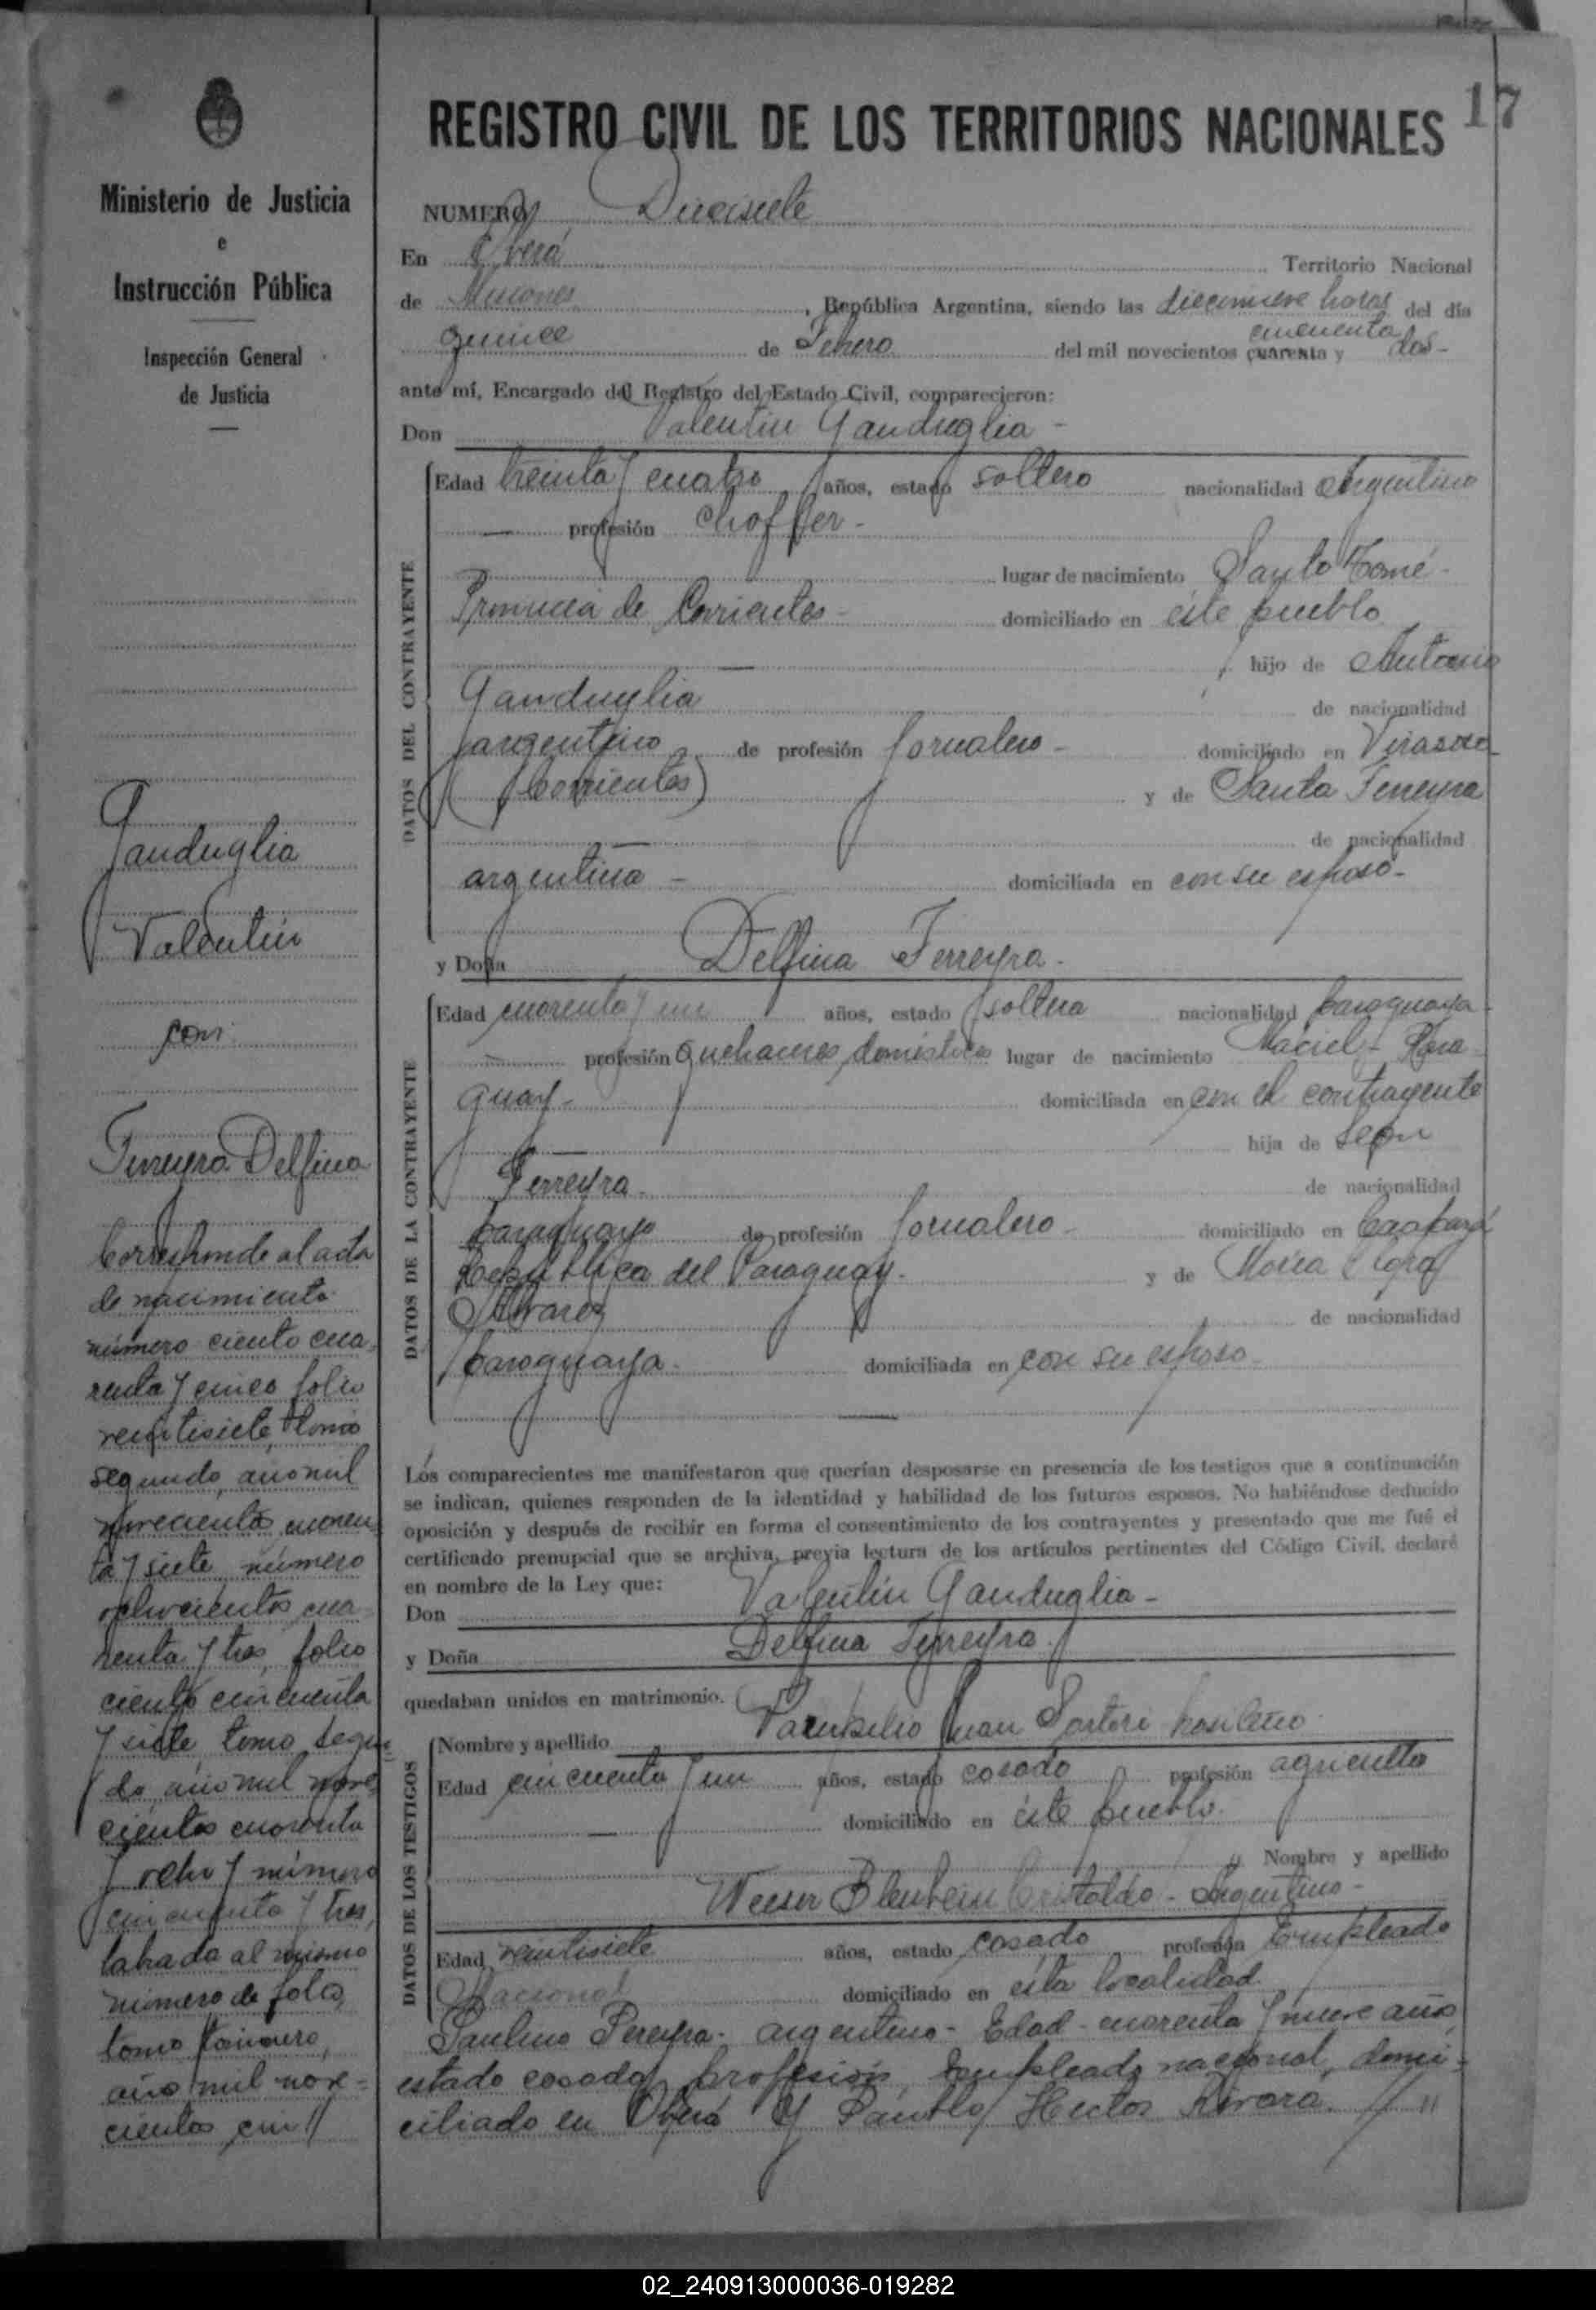 17
REGISTRO CIVIL DE LOS TERRITORIOS NACIONALES
Ministerio de Justicia
e
Instrucción Pública
Inspección General
de Justicia
NUMERO Diecisiete
En Oberá Territorio Nacional
de Misiones, República Argentina, siendo las diecinueve horas del día
quince de Febrero del mil novecientos cuarenta y cincuenta dos-
ante mí, Encargado del Registro del Estado Civil, comparecieron:
Don Valentín Ganduglia -
DATOS DEL CONTRAYENTE
Edad treinta y cuatro años, estado soltero nacionalidad argentino
profesión choffer-
lugar de nacimiento Santo Tomé-
Provincia de Corrientes- domiciliado en éste pueblo
hijo de Antonio
Ganduglia de nacionalidad
argentino de profesión Jornalero- domiciliado en Virasoro-
(Corrientes) y de Santa Ferreyra
de nacionalidad
argentina - domiciliada en con su esposo-
y Doña Delfina Ferreyra-
DATOS DE LA CONTRAYENTE
Edad cuarenta y un años, estado soltera nacionalidad paraguaya-
profesión quehaceres domésticos lugar de nacimiento Maciel- Para-
guay- domiciliada en con el contrayente
hija de León
Ferreyra- de nacionalidad
paraguayo de profesión Jornalero- domiciliado en Caazapá
República del Paraguay- y de María
Alvarez de nacionalidad
paraguaya- domiciliada en con su esposo-
Los comparecientes me manifestaron que querían desposarse en presencia de los testigos que a continuación
se indican, quienes responden de la identidad y habilidad de los futuros esposos. No habiéndose deducido
oposición y después de recibir en forma el consentimiento de los contrayentes y presentado que me fué el
certificado prenupcial que se archiva, previa lectura de los artículos pertinentes del Código Civil, declaré
en nombre de la Ley que:
Don Valentín Ganduglia-
y Doña Delfina Ferreyra.
quedaban unidos en matrimonio.
DATOS DE LOS TESTIGOS
Nombre y apellido Juan Sartori brasileño
Edad cincuenta y un años, estado casado profesión agricultor
domiciliado en éste pueblo.
Nombre y apellido
Cristaldo - Argentino-
Edad veintisiete años, estado casado profesión Empleado
Nacional domiciliado en ésta localidad
Paulino Pereyra- argentino- Edad- cuarenta y nueve años
estado casado, profesión, Empleado nacional, domi-
ciliado en Oberá y Pantlo Hector Rivara. //"
Ganduglia
Valentín
con
Ferreyra Delfina
Corresponde al acta
de nacimiento
número ciento cua-
renta y cinco folio
veintisiete, tomo
segundo, año mil
novecientos cuaren-
ta y siete, número
ochocientos cua-
renta y tres, folio
ciento cincuenta
y siete tomo segun-
do, año mil nove-
cientos cuarenta
y ocho y número
cincuenta y tres,
labrada al mismo
número de folio,
tomo primero,
año mil nove-
cientos cin//
02_240913000036-019282